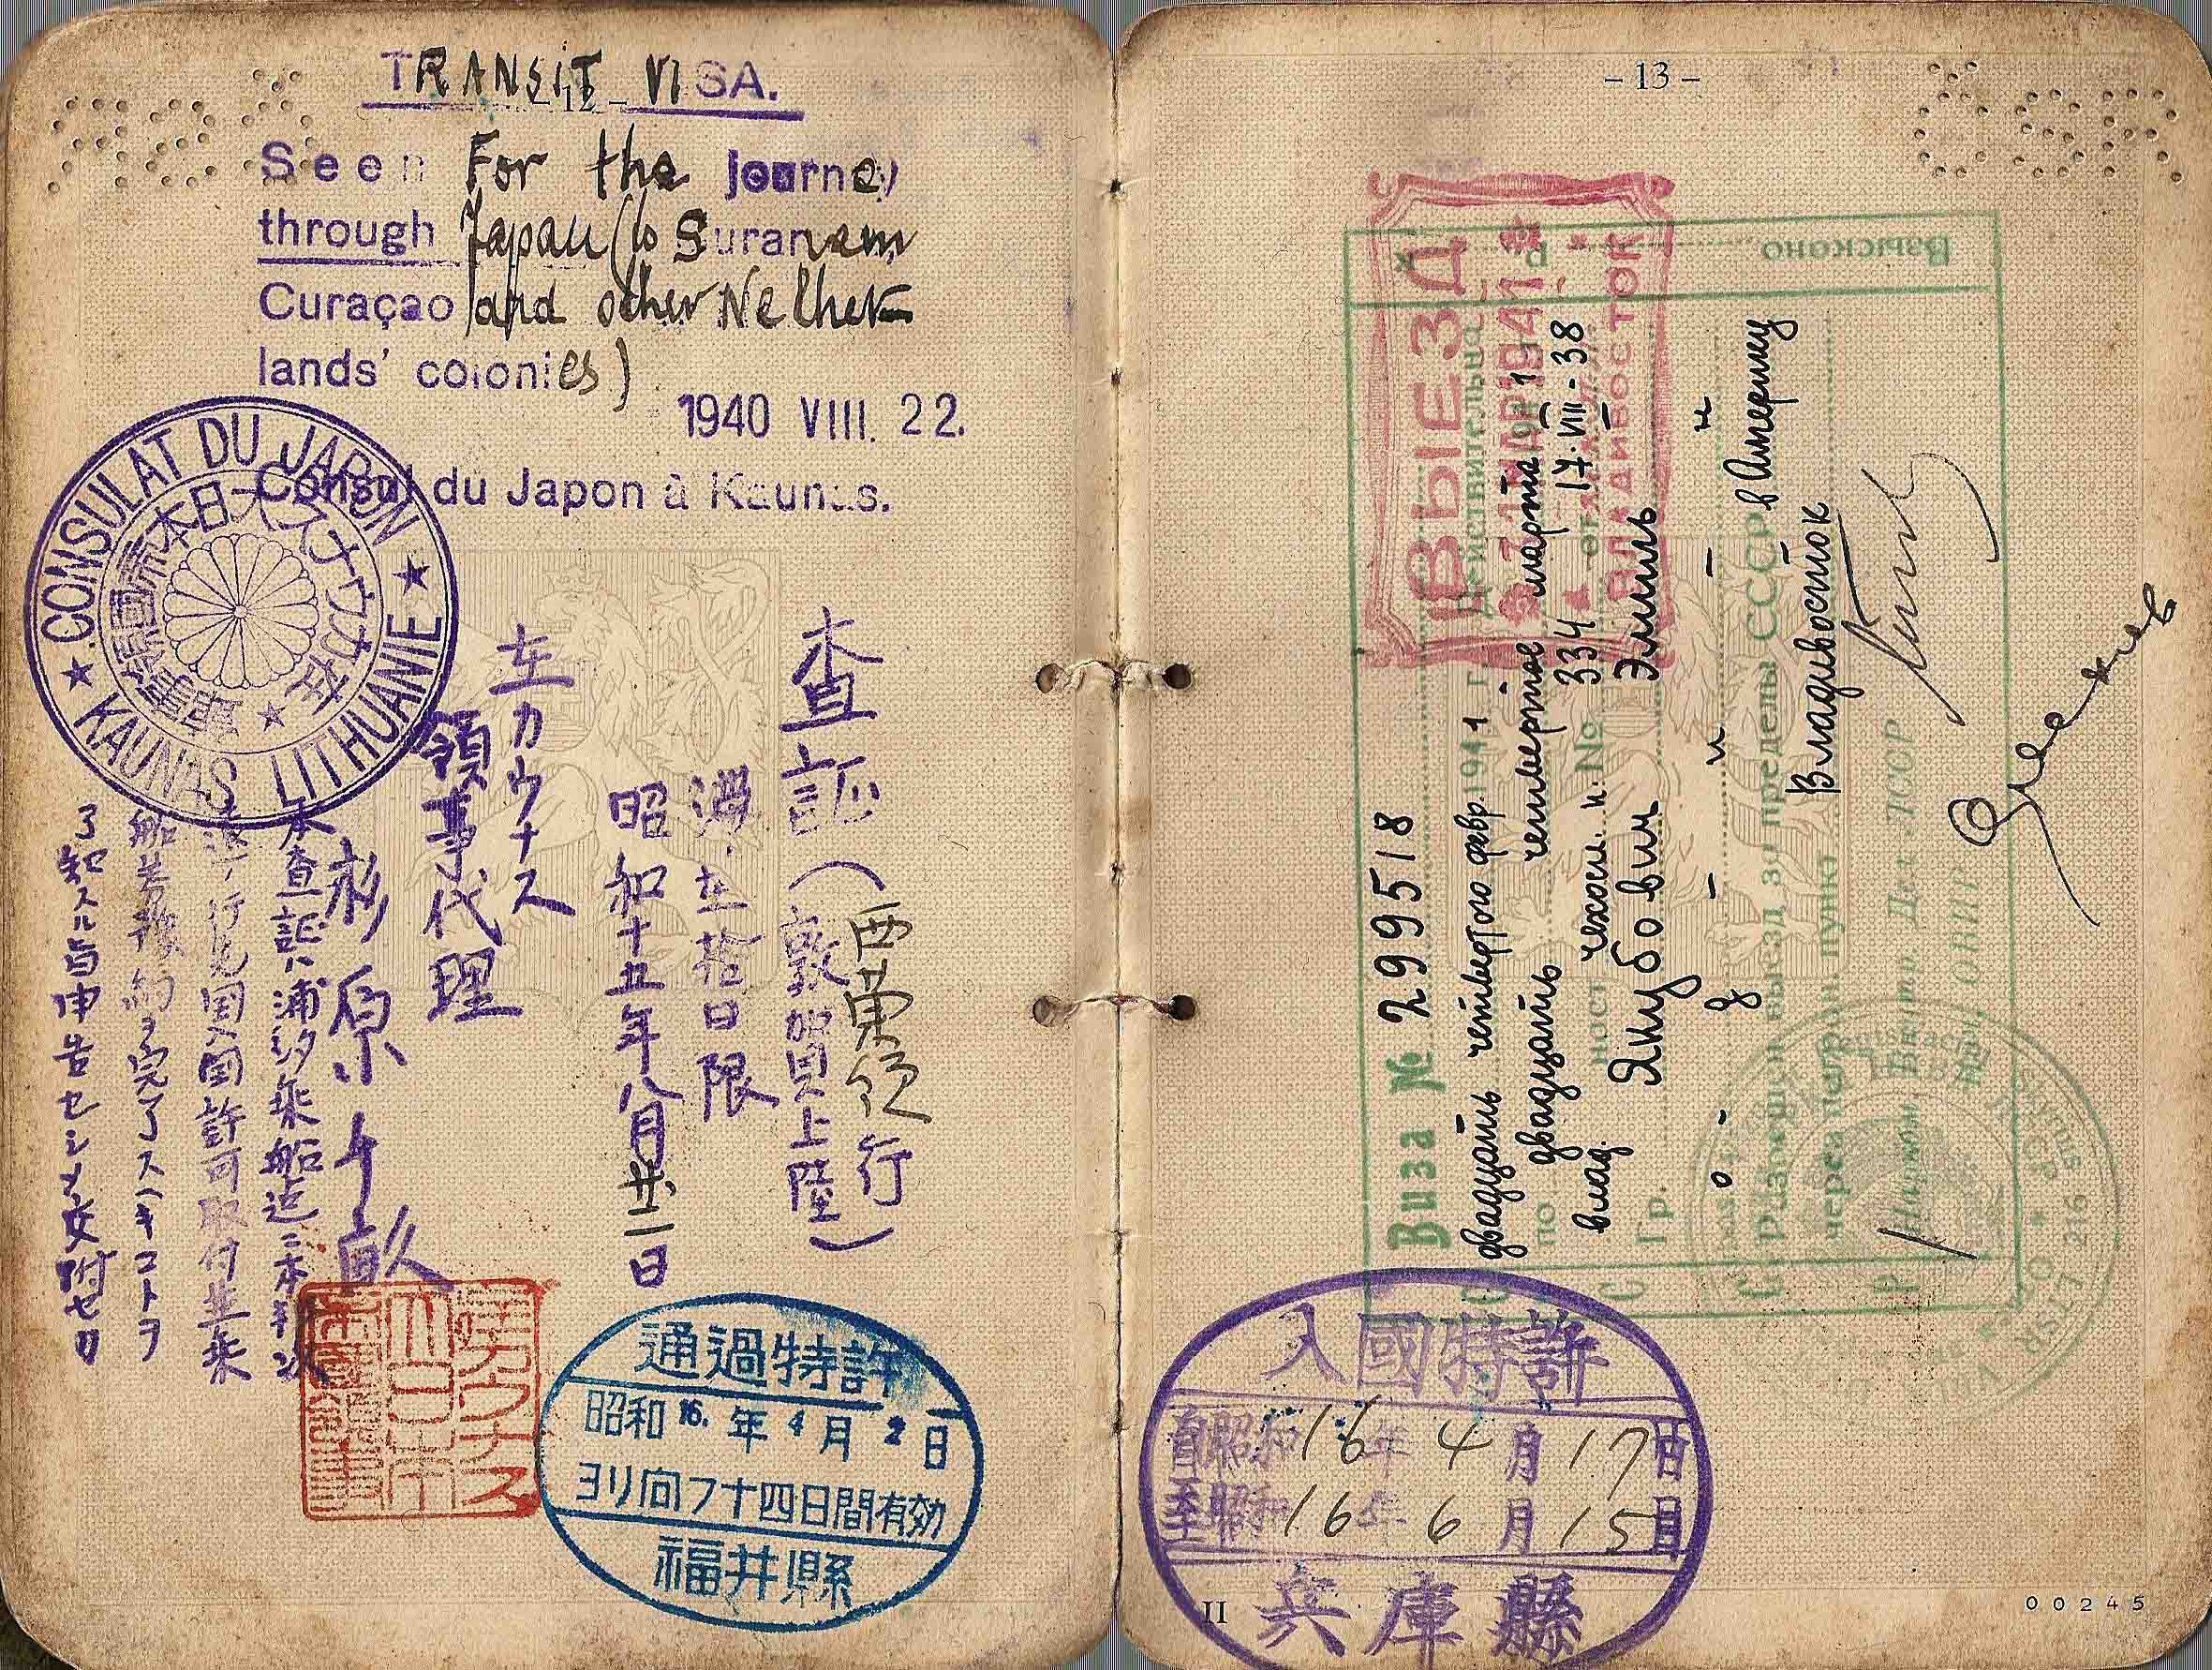 TRANSIT VISA.
- 12 -
Seen For the journey
through Japan (to Suranam
Curaçao and other Nether-
lands' colonies)
1940 VIII. 22.
Consul du Japon à Kaunas.
CONSULAT DU JAPON
KAUNAS LITHUANIE
査証
(敦賀上陸)
行
滞在拾日限
昭和十五年八月廿二日
在カウナス
領事代理
杉原千畝
本査証ハ浦汐乗船迄ニ本邦
行先国入国許可取付並乗
船券予約ヲ完了スヘキコトヲ
了知スル旨申告セシメ交付セリ
通過特許
昭和 16. 年 4 月 2 日
ヨリ向フ十四日間有効
福井縣
- 13 -
ВЫЕЗД
ВЛАДИВОСТОК
Взыскано
Виза № 299518
двадцать четвертого февр. 1941 г.
по двадцать четвертое марта 1
чехосл. п. № 334 от 17-VIII-38
Гр. Якубович Эмиль
выезд за пределы СССР в Америку
через погран. пункт Владивосток
入國特許
自昭和 16 年 4 月 17 日
至昭和 16 年 6 月 15 日
兵庫縣
II
00245